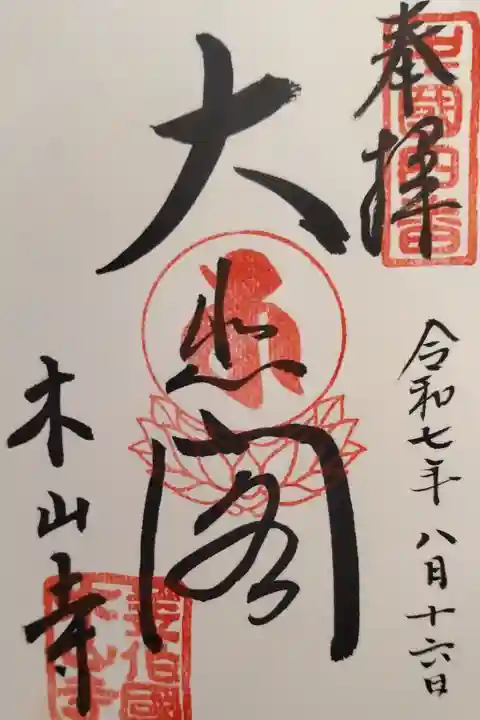 奉拝
中國四番
大悲閣
令和七年八月十六日
木山寺
美作國
木山寺